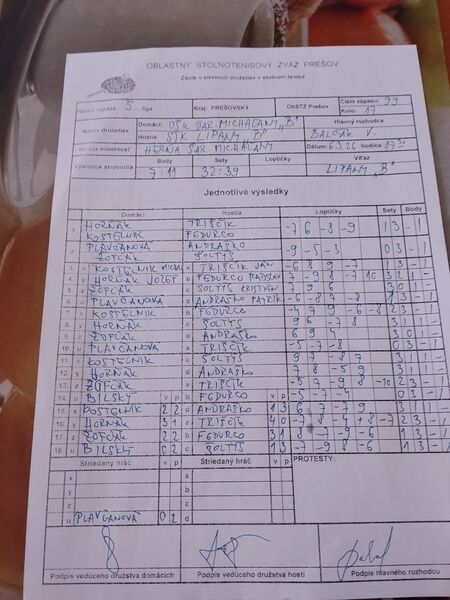 OBLASTNÝ STOLNOTENISOVÝ ZVÄZ PREŠOV
Zápis o stretnutí družstiev v stolnom tenise
Názov súťaže: 5. liga Kraj: PREŠOVSKÝ ObSTZ Prešov Číslo zápasu: 99
Kolo: 17
Názov družstiev Domáci: OŠK ŠAR. MICHAĽANY "B" Hlavný rozhodca
Hostia: STK LIPANY "B" BALČÁK V.
HERŇA ŠAR. MICHAĽANY Dátum: 6.3.26 hodina:
Výsledok stretnutia Body Sety Loptičky Víťaz
7:11 32:39 LIPANY "B"
Jednotlivé výsledky
Domáci Hostia Loptičky Sety Body
1 HORŇÁK TRIŠČIK -7 6 -8 -9 1 3 - 1
KOSTELNIK FEDURCO
2 PLAVČANOVÁ ANDRAŠKO -9 -5 -3 0 3 - 1
ŽOFČÁK ŠOLTÝS
3 KOSTELNIK TRIŠČIK JÁN
4 HORŇÁK JOZEF FEDURCO
5 ŽOFČÁK ŠOLTÝS KRISTIÁN 7 9 6 3 0 1 -
6 PLAVČANOVÁ ANDRAŠKO PATRIK -6 -8 7 -8 1 3 - 1
7 KOSTELNIK FEDURCO -4 7 9 -6 -8 2 3 - 1
8 HORŇÁK ŠOLTÝS 9 6 -7 8 3 1 1 -
9 ŽOFČÁK ANDRAŠKO 6 9 3 0 1 -
10 PLAVČANOVÁ TRIŠČIK -5 -7 -8 0 3 - 1
11 KOSTELNIK ŠOLTÝS 9 7 -8 7 3 1 1 -
12 HORŇÁK ANDRAŠKO 7 8 -5 9 3 1 1 -
13 ŽOFČÁK TRIŠČIK -5 7 -9 8 -10 2 3 - 1
14 BILSKÝ v p FEDURCO v p -5 -7 -8 0 3 - 1
15 KOSTELNIK 2 2 ANDRAŠKO 1 3
16 HORŇÁK 3 1 TRIŠČIK 4 0 2 3 - 1
17 ŽOFČÁK 2 2 FEDURCO 3 1 8 -7 -9 -6 1 3 - 1
18 BILSKÝ 0 2 ŠOLTÝS 1 3 -7 -9 8 -6 1 3 - 1
Striedaný hráč v p Striedaný hráč v p PROTESTY:
x a
y b
z c
u PLAVČANOVÁ 0 2 d
Podpis vedúceho družstva domácich Podpis vedúceho družstva hostí Podpis hlavného rozhodcu